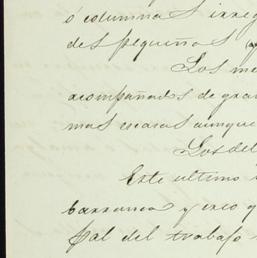 ó columnas irreg
des pequeñas (y
Los me
acompañados de gra
mas escasas aunque
Los del
Este ultimo
barranca y creo q
pal del trabajo